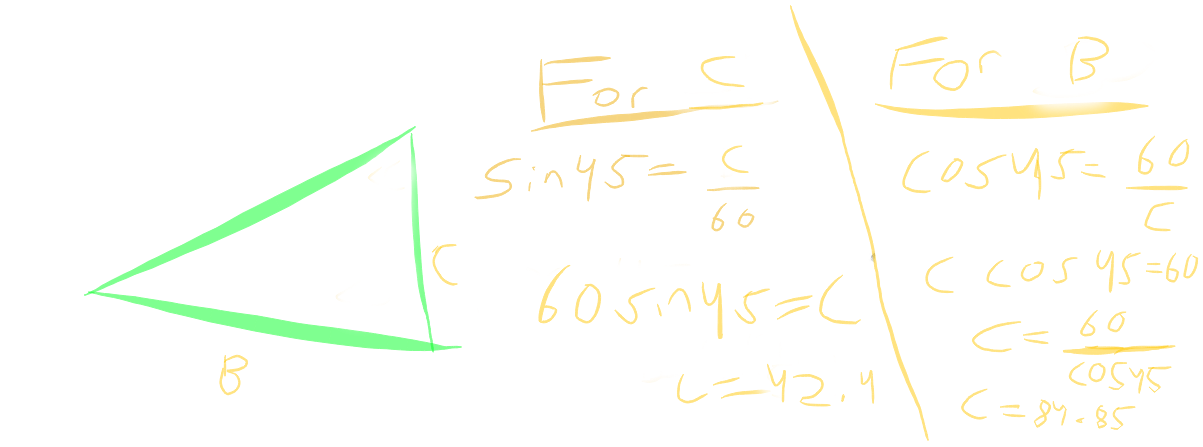 For C
sin45 = C/60
60 sin45 = C
C = 42.4
For B
cos45 = 60/C
C cos45 = 60
C = 60/cos45
C = 84.85
C
B